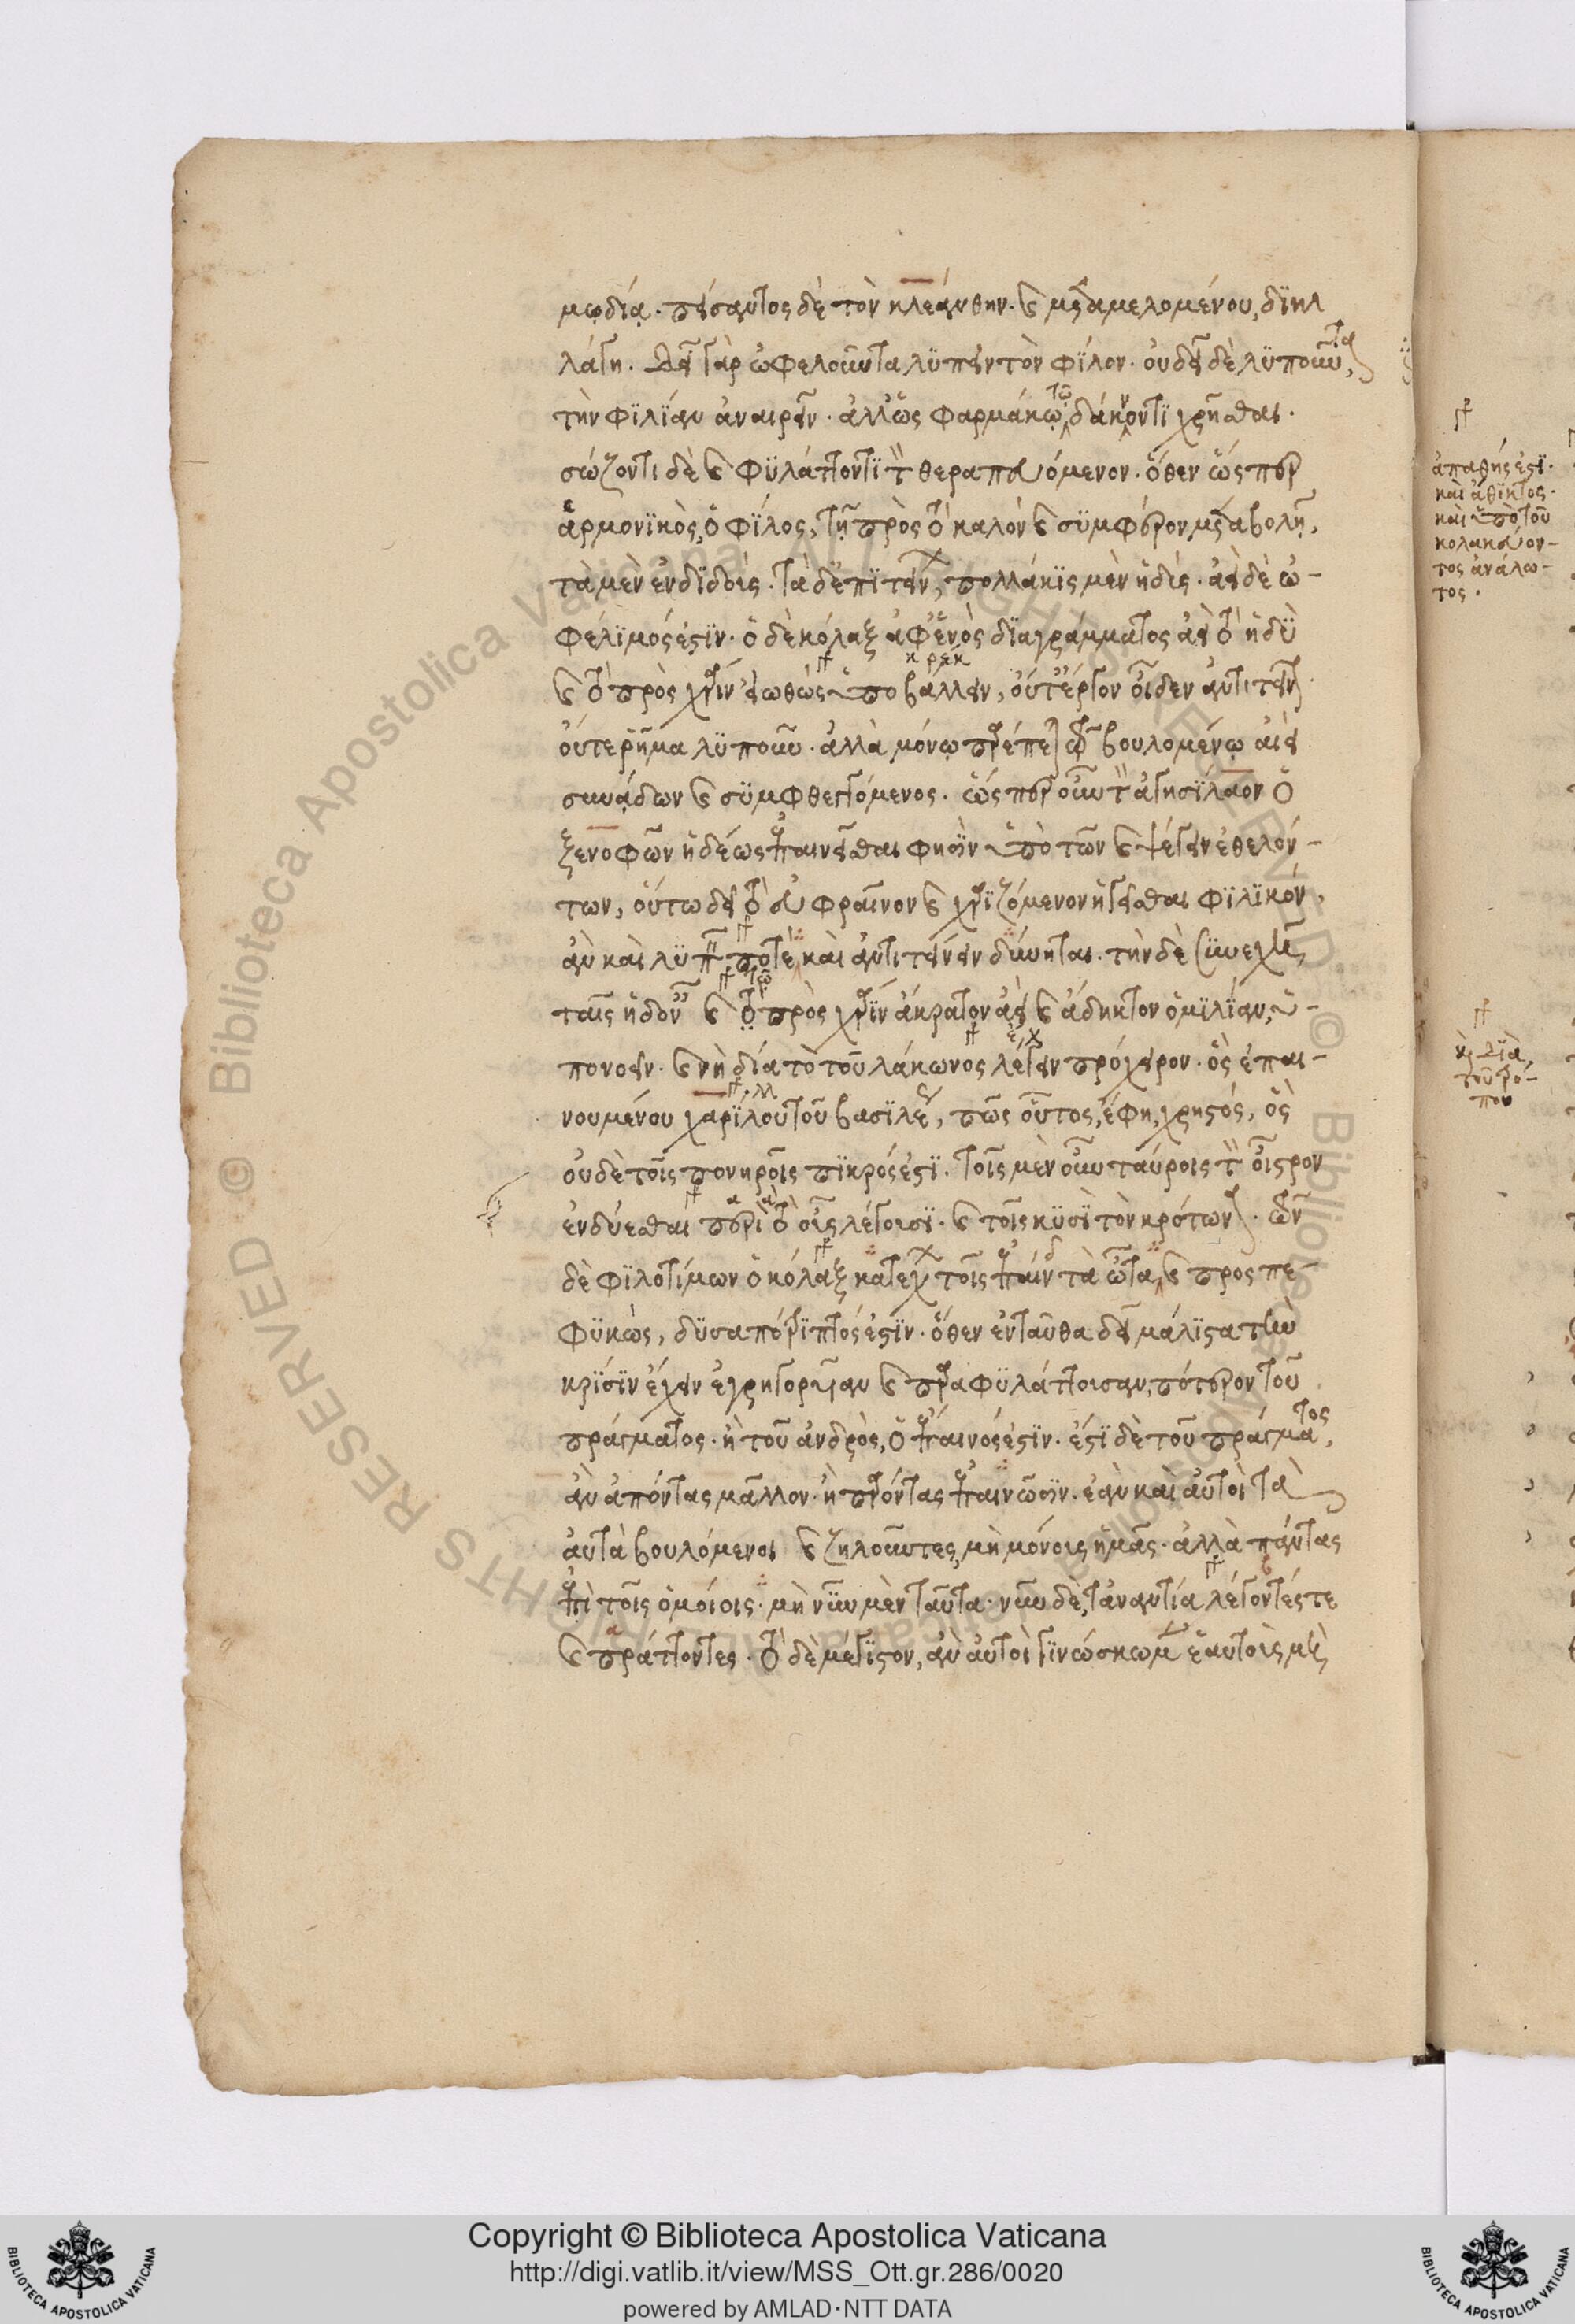 μῳδίᾳ. πείσαντος δὲ τὸν κλεάνθην. καὶ μεταμελομένου, διηλ
λάγη. δεῖ γὰρ ὠφελοῦντα λυπεῖν τὸν φίλον. οὐ δεῖ δὲ λυποῦντα,
τὴν φιλίαν ἀναιρεῖν. ἀλλ' ὡς φαρμάκῳ τῷ δάκνοντι χρῆσθαι.
σώζοντι δὲ καὶ φυλάττοντι τὸ θεραπευόμενον. ὅθεν ὥσπερ
ἁρμονικὸς, ὁ φίλος, τῇ πρὸς τὸ καλὸν καὶ συμφέρον μεταβολῇ,
τὰ μὲν ἐνδιδοὺς. τὰ δ' ἐπιτείνων, πολλάκις μὲν ἡδύς. ἀεὶ δὲ ὠ-
φέλιμός ἐστιν. ὁ δὲ κόλαξ ἀφ' ἑνὸς διαγράμματος ἀεὶ τὸ ἡδὺ
καὶ τὸ πρὸς χάριν εἰωθὼς ὑποβάλλειν, οὔτ' ἔργον οἶδεν ἀντιτεῖνον
οὔτε ῥῆμα λυποῦν. ἀλλὰ μόνῳ παρέπεται τῷ βουλομένῳ ἀεὶ
συνᾴδων καὶ συμφθεγγόμενος. ὥσπερ οὖν τὸν ἀγησίλαον ὁ
ξενοφῶν ἡδέως ἐπαινεῖσθαι φησὶν ὑπὸ τῶν καὶ ψέγειν ἐθελόν-
των, οὕτω δεῖ τὸ εὐφραῖνον καὶ χαριζόμενον ἡγεῖσθαι φιλικόν,
ἂν καὶ λυπεῖν ποτὲ καὶ ἀντιτείνειν δύνηται. τὴν δὲ συνεχῆ
ταῖς ἡδοναῖς καὶ τὸ πρὸς χάριν ἄκρατον ἀεὶ καὶ ἄδηκτον ὁμιλίαν, ὑ-
πονοεῖν. καὶ νὴ δία τὸ τοῦ λάκωνος λέγειν πρόχειρον. ὃς ἐπαι-
νουμένου χαρίλου τοῦ βασιλέως, πῶς οὗτος, ἔφη, χρηστός, ὃς
οὐδὲ τοῖς πονηροῖς πικρός ἐστι. τοῖς μὲν οὖν ταύροις τὸν οἶστρον
ἐνδύεσθαι περὶ τὸ οὖς λέγουσι. καὶ τοῖς κυσὶ τὸν κρότωνα. τῶν
δὲ φιλοτίμων ὁ κόλαξ κατέχων τοῖς ἐπαίνοις τὰ ὦτα, καὶ προσπε-
φυκὼς, δυσαπότριπτός ἐστιν. ὅθεν ἐνταῦθα δεῖ μάλιστα τὴν
κρίσιν ἔχειν ἐγρηγορυῖαν καὶ παραφυλάττουσαν, πότερον τοῦ
πράγματος. ἢ τοῦ ἀνδρὸς, ὁ ἔπαινός ἐστιν. ἔστι δὲ τοῦ πράγματος,
ἂν ἀπόντας μᾶλλον. ἢ παρόντας ἐπαινῶσιν. ἐὰν καὶ αὐτοὶ τὰ
αὐτὰ βουλόμενοι καὶ ζηλοῦντες, μὴ μόνους ἡμᾶς. ἀλλὰ πάντας
ἐπὶ τοῖς ὁμοίοις. μὴ νῦν μὲν ταῦτα. νῦν δὲ, τἀναντία λέγοντές τε
καὶ πράττοντες. τὸ δὲ μέγιστον, ἂν αὐτοὶ γινώσκωμεν ἑαυτοὺς μὴ
ἀπαθής ἐστι.
καὶ ἄθικτος.
καὶ ὑπὸ τοῦ
κολακεύον-
τος ἀνάλω-
τος.